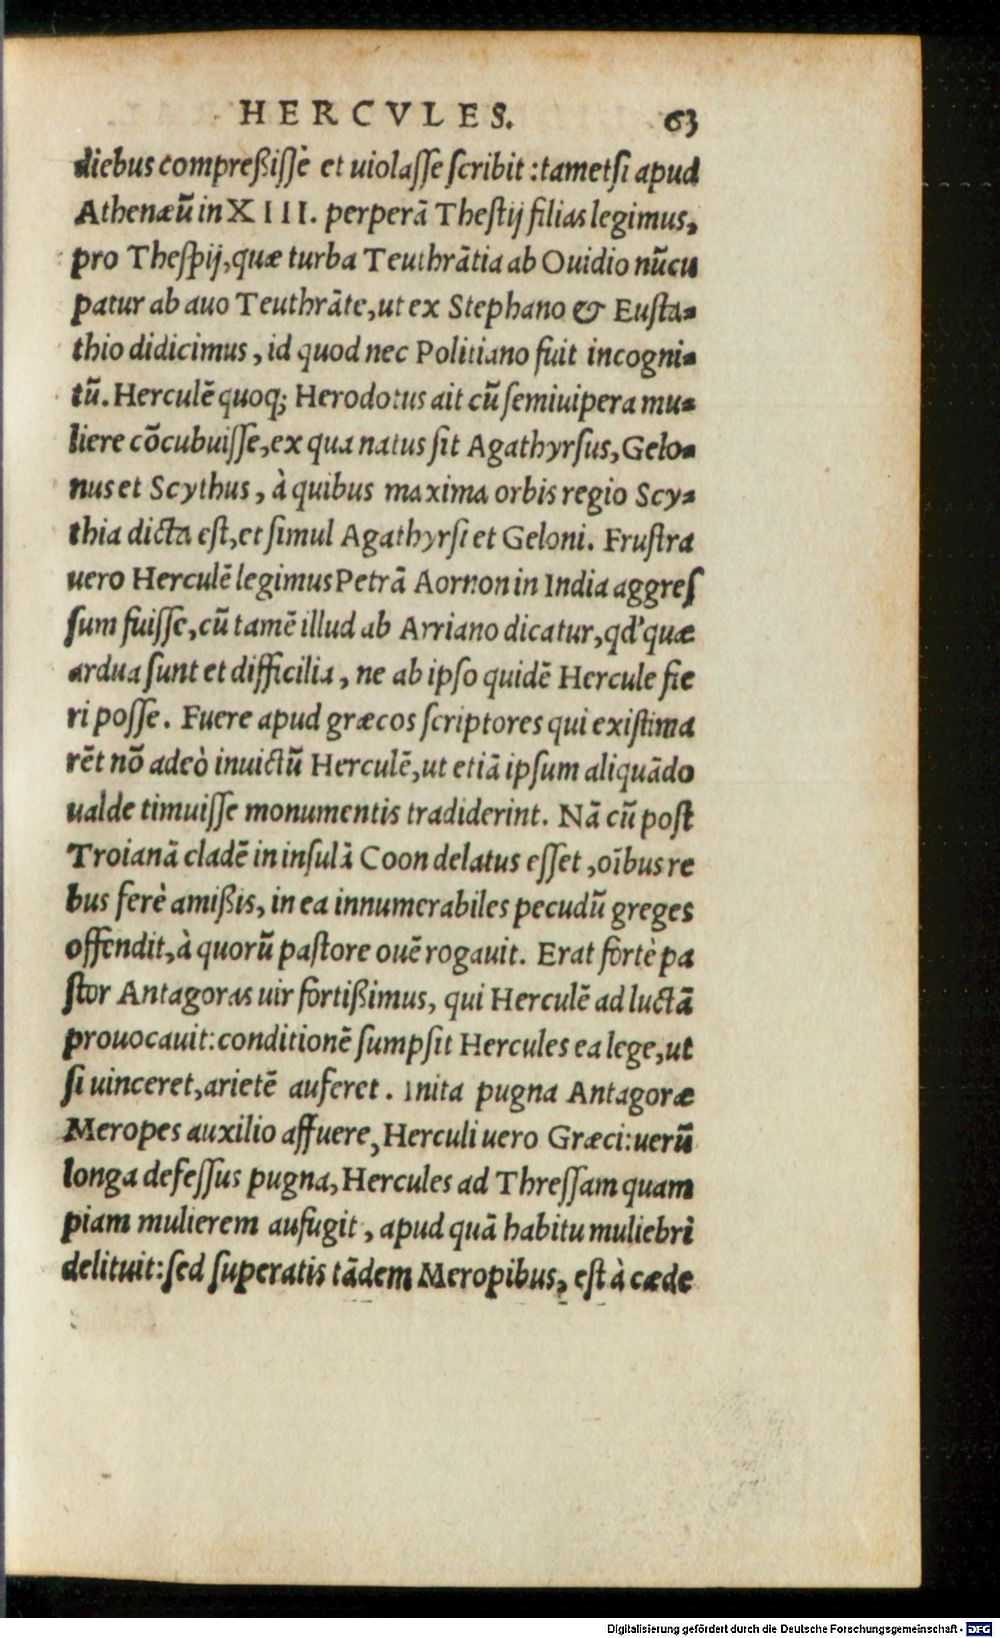 HERCVLES. 63
diebus compreßiſſè et uiolaſſe ſcribit : tametſi apud
Athenæũ in XIII. perperã Theſtij filias legimus,
pro Theſpij, quæ turba Teuthrãtia ab Ouidio nũcu
patur ab auo Teuthrãte, ut ex Stephano & Euſta-
thio didicimus, id quod nec Politiano fuit incogni-
tũ. Herculẽ quoq; Herodotus ait cũ ſemiuipera mu-
liere cõcubuiſſe, ex qua natus ſit Agathyrſus, Gelo-
nus et Scythus, à quibus maxima orbis regio Scy-
thia dicta eſt, et ſimul Agathyrſi et Geloni. Fruſtra
uero Herculẽ legimus Petrã Aornon in India aggreſ
ſum fuiſſe, cũ tamẽ illud ab Arriano dicatur, qd' quæ
ardua ſunt et difficilia, ne ab ipſo quidẽ Hercule fie
ri poſſe. Fuere apud græcos ſcriptores qui exiſtima
rẽt nõ adeò inuictũ Herculẽ, ut etiã ipſum aliquãdo
ualde timuiſſe monumentis tradiderint. Nã cũ poſt
Troianã cladẽ in inſulã Coon delatus eſſet, oĩbus re
bus ferè amißis, in ea innumerabiles pecudũ greges
offendit, à quorũ paſtore ouẽ rogauit. Erat fortè pa
ſtor Antagoras uir fortißimus, qui Herculẽ ad luctã
prouocauit: conditionẽ ſumpſit Hercules ea lege, ut
ſi uinceret, arietẽ auferet. Inita pugna Antagoræ
Meropes auxilio affuere, Herculi uero Græci: uerũ
longa defeſſus pugna, Hercules ad Threſſam quam
piam mulierem aufugit, apud quã habitu muliebri
delituit: ſed ſuperatis tãdem Meropibus, eſt à cæde
Digitalisierung gefördert durch die Deutsche Forschungsgemeinschaft - DFG